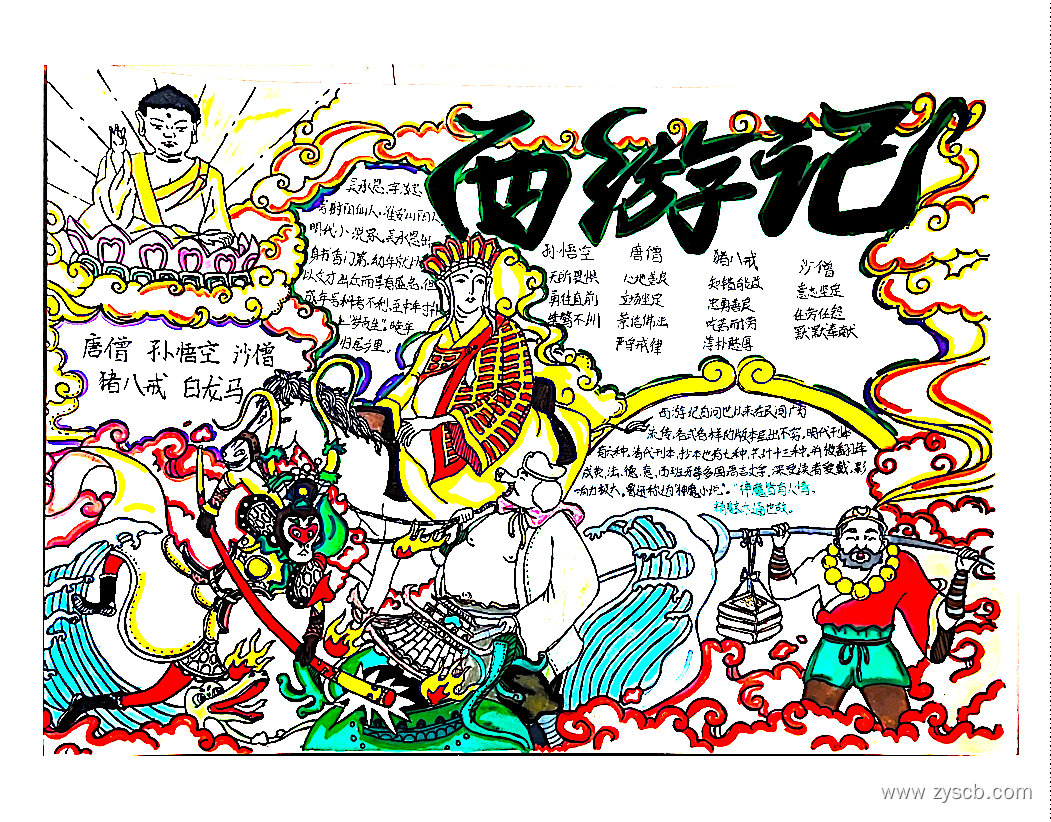 西游记
吴承恩,字汝忠
号射阳山人,淮安山阳人
明代小说家。吴承恩出
身书香门第,幼年就以
以文才出众而享有盛名,但
成年后科考不利,至中年才补
上"岁贡生",晚年
归居乡里。
唐僧 孙悟空 沙僧
猪八戒 白龙马
孙悟空
无所畏惧
勇往直前
唐僧
心地善良
立场坚定
崇信佛法
严守戒律
猪八戒
知错能改
忠勇善良
吃苦耐劳
淳朴憨厚
沙僧
意志坚定
任劳任怨
默默奉献
西游记自问世以来在民间广为
流传,各式各样的版本层出不穷,明代刊本
有六种,清代刊本、抄本也有七种,共计十三种,并被翻译
成英、法、德、意、西班牙等多国语言文字,深受读者爱戴,影
响力极大,
"神魔皆有人情,
精魅亦通世故。
www.zyscb.com